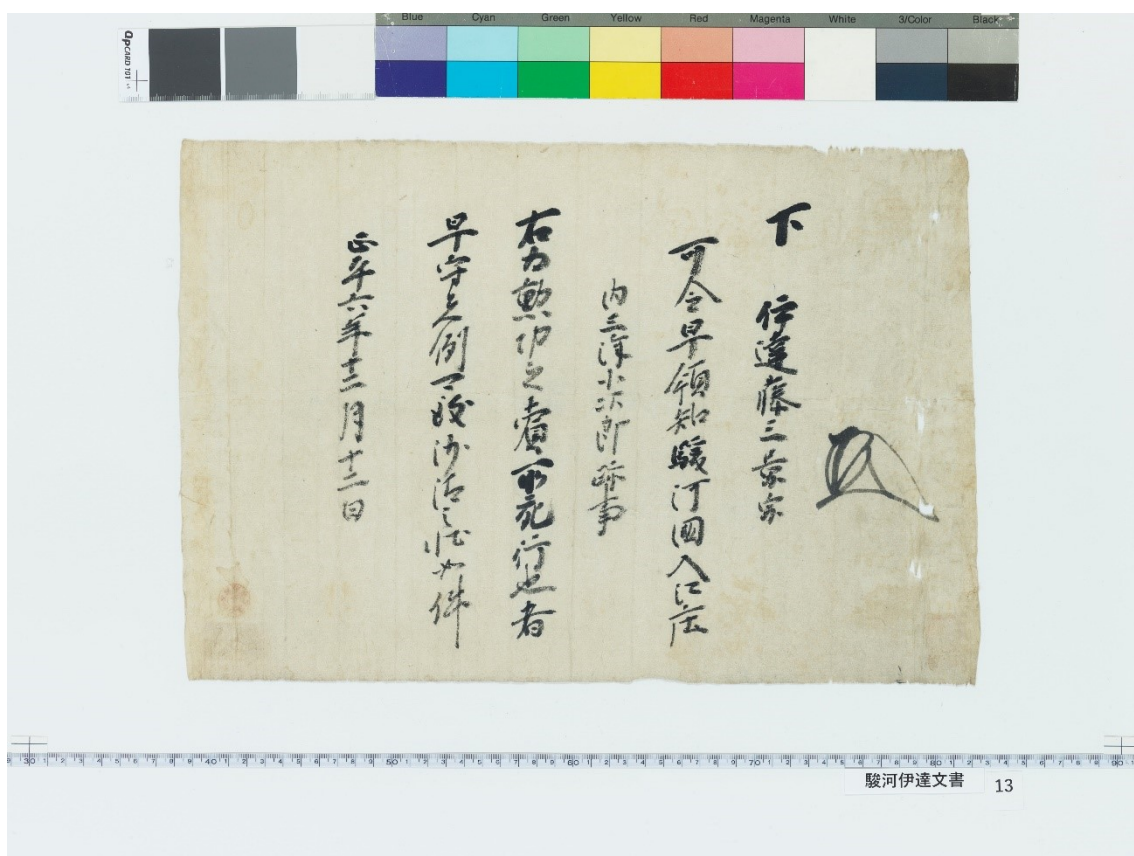 Blue Cyan Green Yellow Red Magenta White 3/Color Black
QPCARD 101
下 伊達藤三景宗
可令早領知駿河國入江庄
内三澤小次郎跡事
右为勲功之賞所宛行也者
早守先例可致沙汰之状如件
正平六年十二月十二日
駿河伊達文書 13